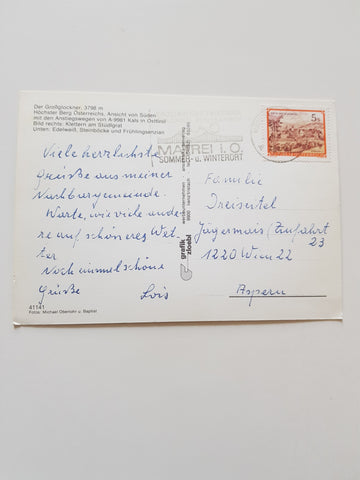 Der Großglockner, 3798 m
Höchster Berg Österreichs, Ansicht von Süden
mit den Anstiegswegen von A-9981 Kals in Osttirol
Bild rechts: Klettern am Stüdlgrat
Unten: Edelweiß, Steinböcke und Frühlingsenzian
Viele herzlichste
Grüße aus meiner
Nachbargemeinde.
Warte, wie viele ande-
re auf schöneres Wet-
ter
Noch einmal schöne
Grüße Lois
41141
Fotos: Michael Oberlohr u. Baptist
grafik
zloebl
MATREI i. O.
SOMMER- u. WINTERORT
5 S
Familie
Dreiseitel
Jägermais (Zufahrt
23
1220 Wien 22
Aspern